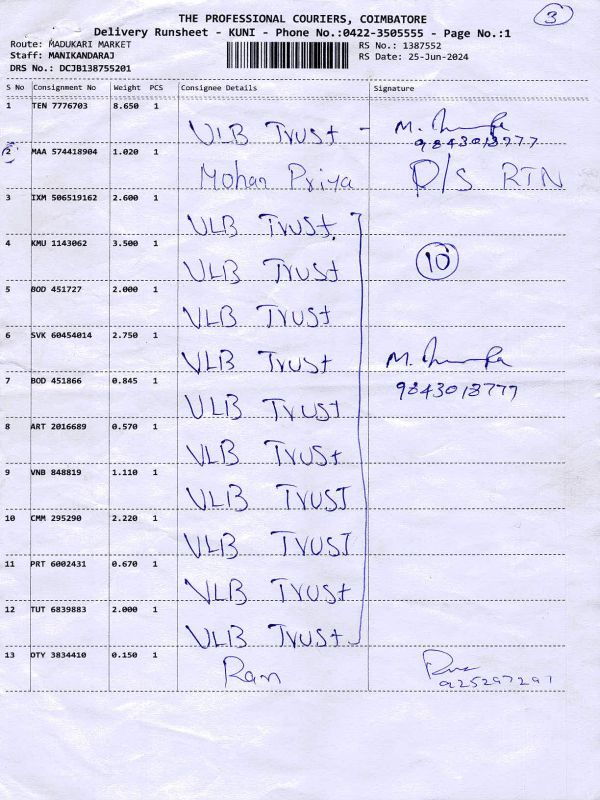 3
THE PROFESSIONAL COURIERS, COIMBATORE
Delivery Runsheet - KUNI - Phone No.:0422-3505555 - Page No.:1
Route: MADUKARI MARKET
RS No.: 1387552
Staff: MANIKANDARAJ
RS Date: 25-Jun-2024
DRS No.: DCJB138755201
S No Consignment No Weight PCS Consignee Details Signature
1 TEN 7776703 8.650 1
VLB Trust - M.
9843018777
2 MAA 574418904 1.020 1
Mohan Priya D/S RTN
3 IXM 506519162 2.600 1
VLB Trust.
4 KMU 1143062 3.500 1
VLB Trust 10
5 BOD 451727 2.000 1
VLB Trust
6 SVK 60454014 2.750 1
VLB Trust M.
7 BOD 451866 0.845 1
9843018777
VLB Trust
8 ART 2016689 0.570 1
VLB Trust
9 VNB 848819 1.110 1
VLB TRUST
10 CMM 295290 2.220 1
VLB TRUST
11 PRT 6002431 0.670 1
VLB Trust
12 TUT 6839883 2.000 1
VLB Trust
13 OTY 3834410 0.150 1
Ran